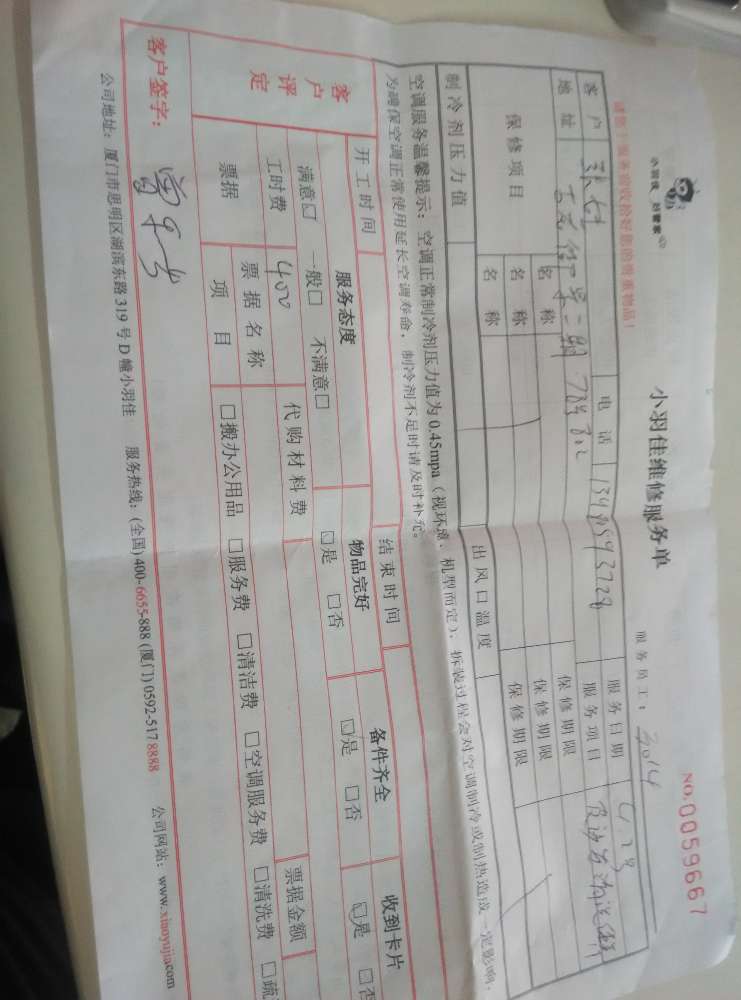 小羽佳 好管家
小羽佳维修服务单
NO:0059667
请您于服务前收拾好您的贵重物品!
服务员工: 3014
客户 电话 服务日期 4.28
地址 服务项目
保修项目 名称 保修期限
名称 保修期限
名称 保修期限
制冷剂压力值 出风口温度
空调服务温馨提示:空调正常制冷剂压力值为0.45mpa(视环境、机型而定),拆装过程会对空调制冷或制热造成一定影响,
为确保空调正常使用延长空调寿命,制冷剂不足时请及时补充。
开工时间 结束时间
客户评定 服务态度 物品完好 备件齐全 收到卡片
满意□ 一般□ 不满意□ □是 □否 □是 □否 □是 □否
工时费 400 代购材料费
票据 票据名称 票据金额
项目 □搬办公用品 □服务费 □清洁费 □空调服务费 □清洗费 □疏
客户签字:
公司地址:厦门市思明区湖滨东路319号D幢小羽佳 服务热线:(全国)400-6655-888 (厦门)0592-5178888 公司网站:www.xiaoyujia.com